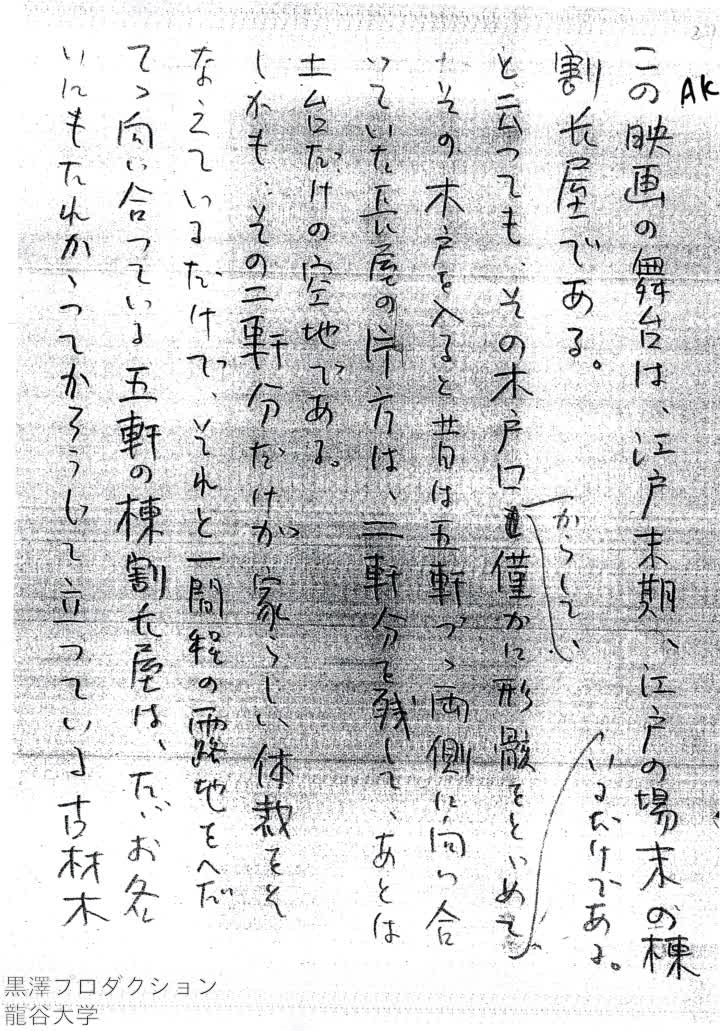 AK
この映画の舞台は、江戸末期、江戸の場末の棟
割長屋である。
と云つても、その木戸口からして、僅かに形骸をとゞめて
いるだけである。
その木戸を入ると昔は五軒づゝ両側に向い合
つていた長屋の片方は、二軒分を残して、あとは
土台だけの空地である。
しかも、その二軒分だけが家らしい体裁をそ
なえているだけで、それと一間程の露地をへだ
てゝ向い合つている五軒の棟割長屋は、たゞお互
いにもたれかゝつてかろうじて立つている古材木
黒澤プロダクション
龍谷大学